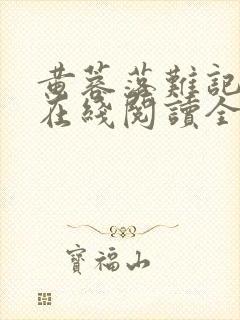 黄蓉落難記
在綫閱讀全
寶福山